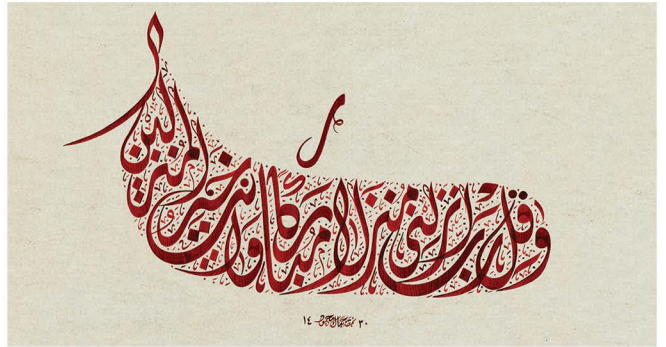 وقل رب أنزلني منزلا مباركا وأنت خير المنزلين
١٤٣٠